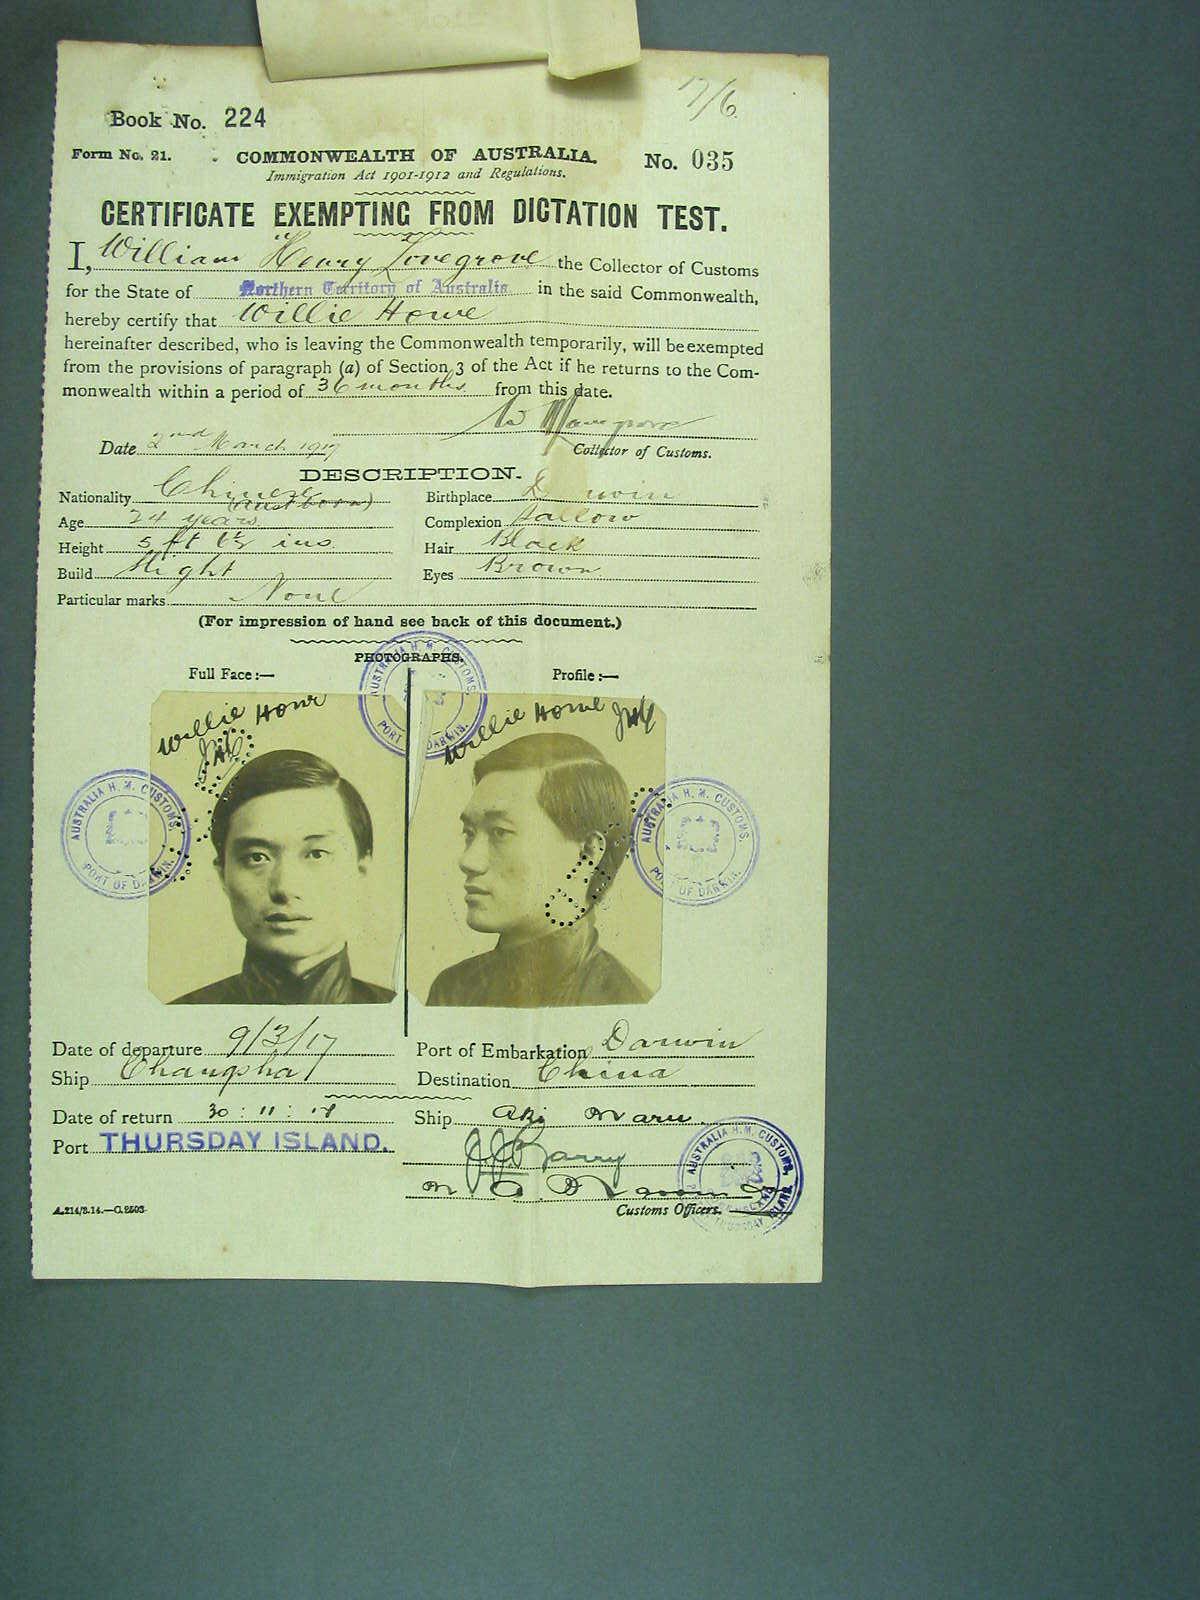 17/6
Book No. 224
Form No. 21. COMMONWEALTH OF AUSTRALIA. No. 035
Immigration Act 1901-1912 and Regulations.
CERTIFICATE EXEMPTING FROM DICTATION TEST.
I, William Henry Lovegrove the Collector of Customs
for the State of Northern Territory of Australia in the said Commonwealth,
hereby certify that Willie Howe
hereinafter described, who is leaving the Commonwealth temporarily, will be exempted
from the provisions of paragraph (a) of Section 3 of the Act if he returns to the Com-
monwealth within a period of 36 months from this date.
W Lovegrove
Date 2nd March 1917 Collector of Customs.
DESCRIPTION.
Nationality Chinese (Aust born) Birthplace Darwin
Age 24 years Complexion Sallow
Height 5 ft 6½ ins Hair Black
Build Slight Eyes Brown
Particular marks None
(For impression of hand see back of this document.)
PHOTOGRAPHS.
Full Face:— Profile:—
Willie Howe Willie Howe
AUSTRALIA H. M. CUSTOMS. PORT OF DARWIN.
AUSTRALIA H. M. CUSTOMS. PORT OF DARWIN.
AUSTRALIA H. M. CUSTOMS. PORT OF DARWIN.
Date of departure 9/3/17 Port of Embarkation Darwin
Ship Changsha Destination China
Date of return 30:11:18 Ship Aki Maru
Port THURSDAY ISLAND.
Customs Officers.
AUSTRALIA H.M. CUSTOMS, THURSDAY ISLAND
A.214/3.14.—C.2503